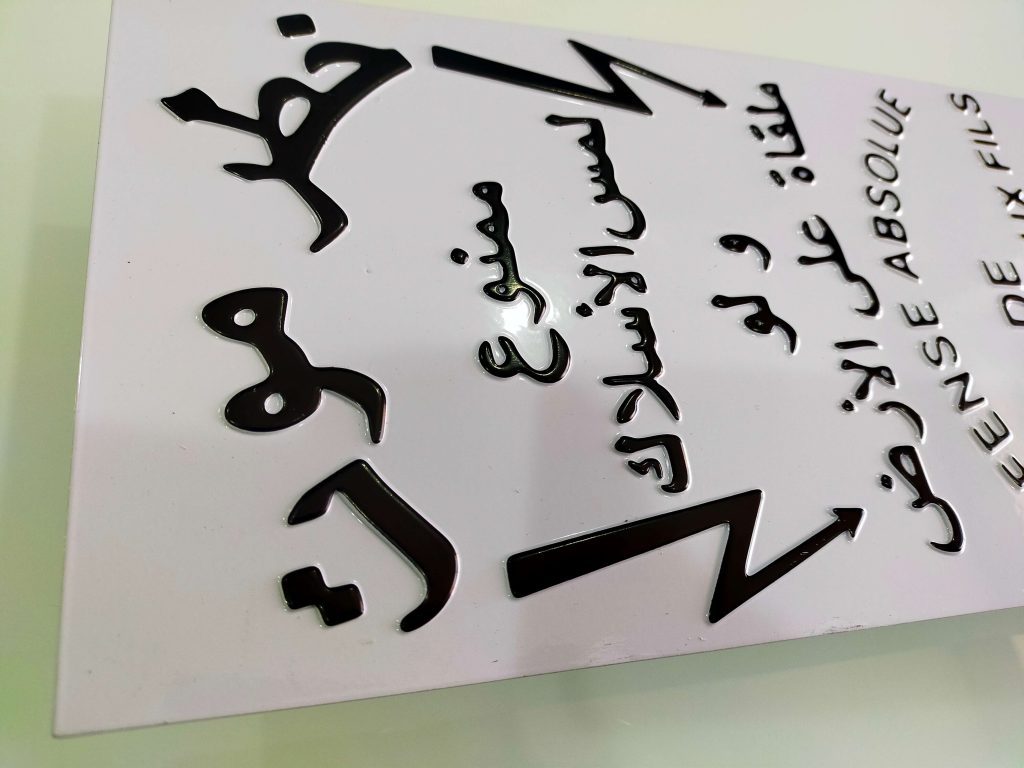 خطر موت
ممنوع
لمس الاسلاك
ولو
ملقاة على الارض
FENSE ABSOLUE
DE UX FILS